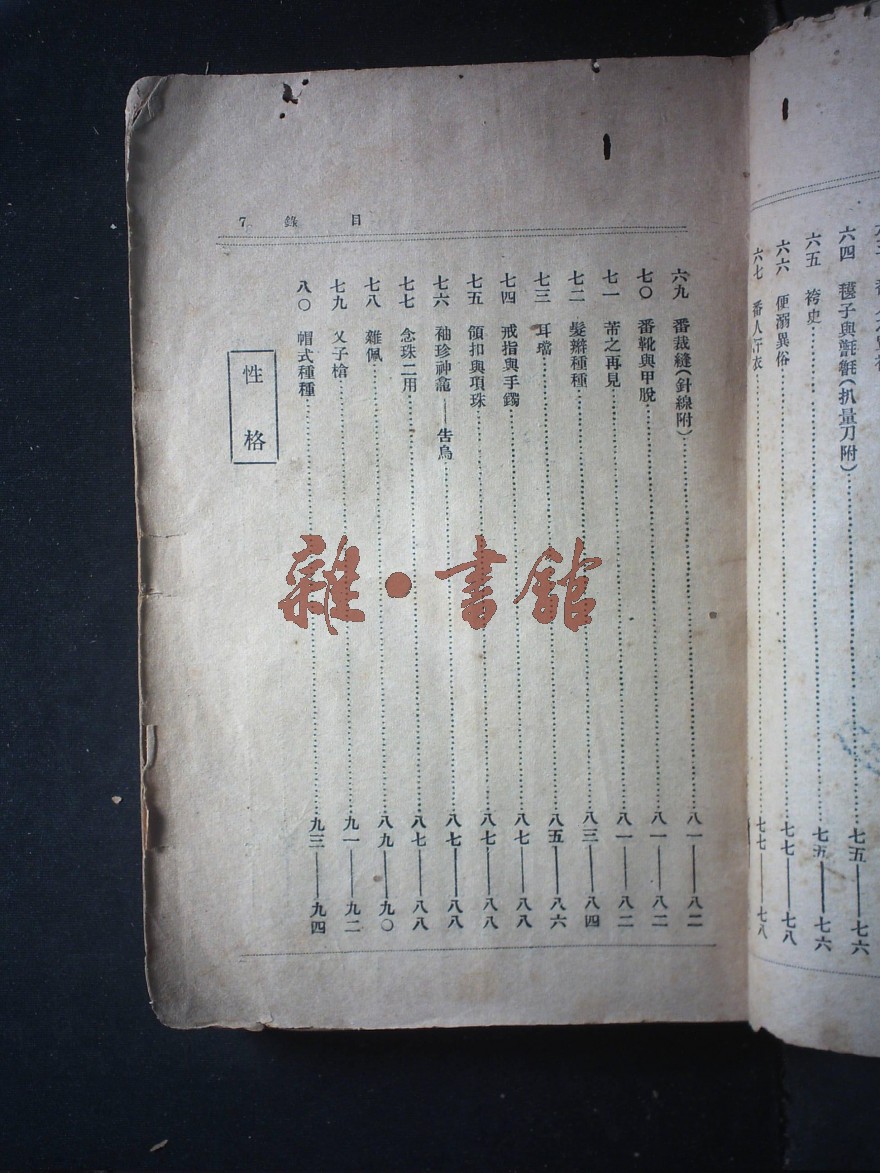 六四 氆子與氈毼(扒量刀附)……七五——七六
六五 袴史……七五——七六
六六 便溺異俗……七七——七八
六七 番人 衣……七七——七八
目錄 7
六九 番裁縫(針線附)……八一——八二
七〇 番靴與甲脫……八一——八二
七一 芾之再見……八一——八二
七二 髮辮種種……八三——八四
七三 耳璫……八五——八六
七四 戒指與手鐲……八七——八八
七五 領扣與項珠……八七——八八
七六 袖珍神龕——告烏……八七——八八
七七 念珠二用……八七——八八
七八 雜佩……八九——九〇
七九 义子槍……九一——九二
八〇 帽式種種……九三——九四
性格
雜·書館